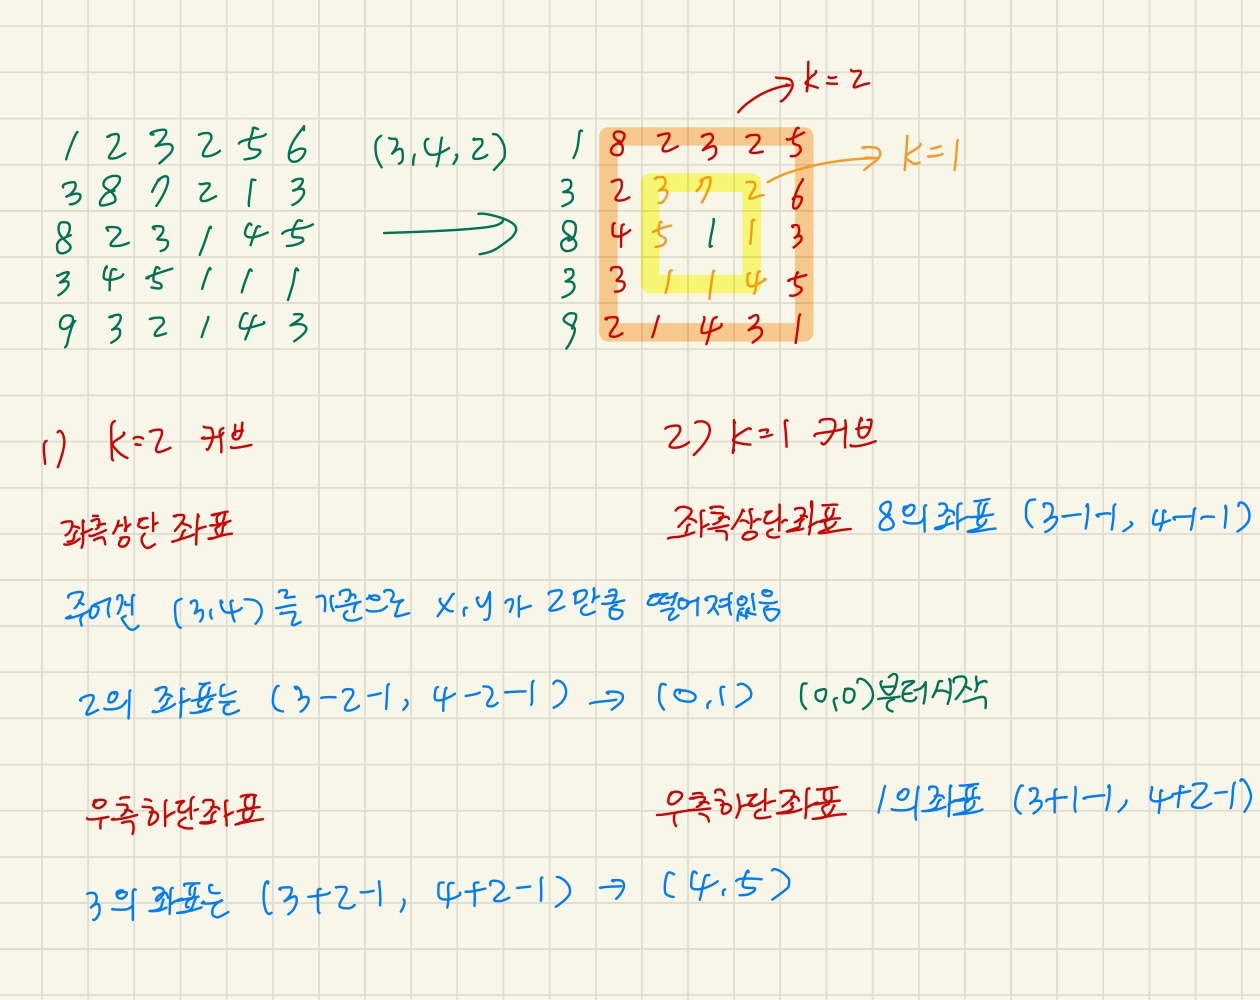 k=2
1 2 3 2 5 6 (3,4,2) 1 8 2 3 2 5 k=1
3 8 7 2 1 3 3 2 3 7 2 6
8 2 3 1 4 5 8 4 5 1 1 3
3 4 5 1 1 1 3 3 1 1 4 5
9 3 2 1 4 3 9 2 1 4 3 1
1) k=2 커브
2) k=1 커브
좌측상단 좌표
좌측상단좌표 8의 좌표 (3-1-1, 4-1-1)
주어진 (3,4)를 기준으로 x,y가 2만큼 떨어져있음
2의 좌표는 (3-2-1, 4-2-1) → (0,1) (0,0)부터시작
우측하단좌표
우측하단좌표 1의좌표 (3+1-1, 4+2-1)
3의 좌표는 (3+2-1, 4+2-1) → (4,5)